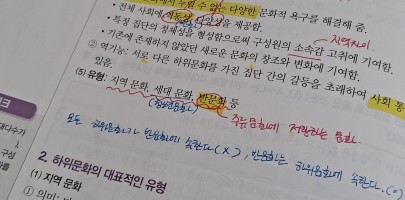 수 없는 다양한 문화적 욕구를 해결해 줌.
• 전체 사회에 역동성 다양성을 제공함.
지역차이
• 특정 집단의 정체성을 형성함으로써 구성원의 소속감 고취에 기여함.
• 기존에 존재하지 않았던 새로운 문화의 창조와 변화에 기여함.
② 역기능: 서로 다른 하위문화를 가진 집단 간의 갈등을 초래하여 사회 통
있음.
(5) 유형: 지역 문화, 세대 문화, 반문화 등
주류문화에 저항하는 문화.
모든 하위문화가 반문화에 속한다 (X), 반문화는 하위문화에 속한다. (O)
2. 하위문화의 대표적인 유형
(1) 지역 문화
① 의미:
크
대다수가
구성
화를